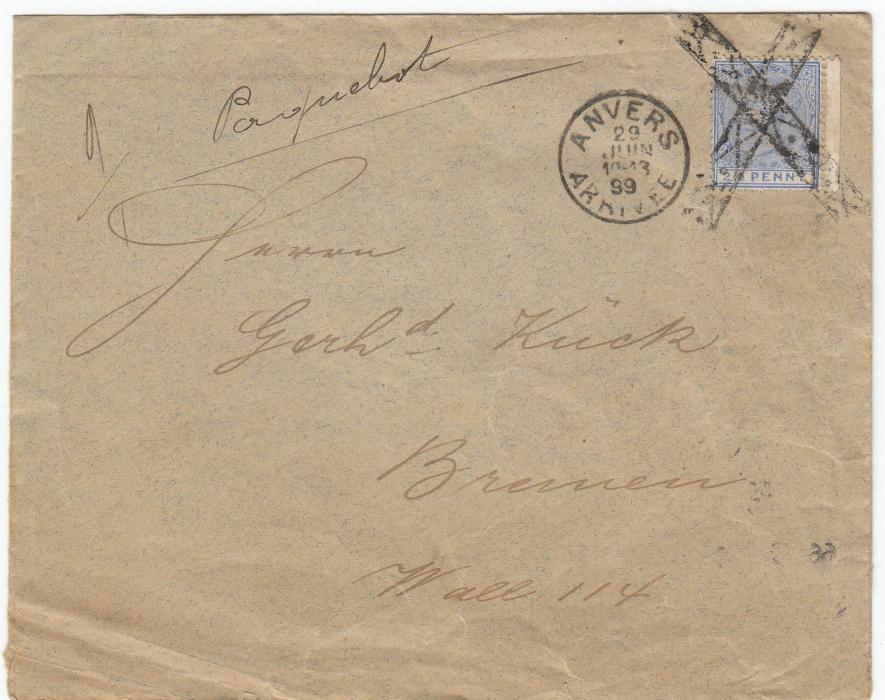 Paquebot
ANVERS
29
JUIN
99
ARRIVEE
PENNY
Herrn
Gerhd Kück
Bremen
Wall 114